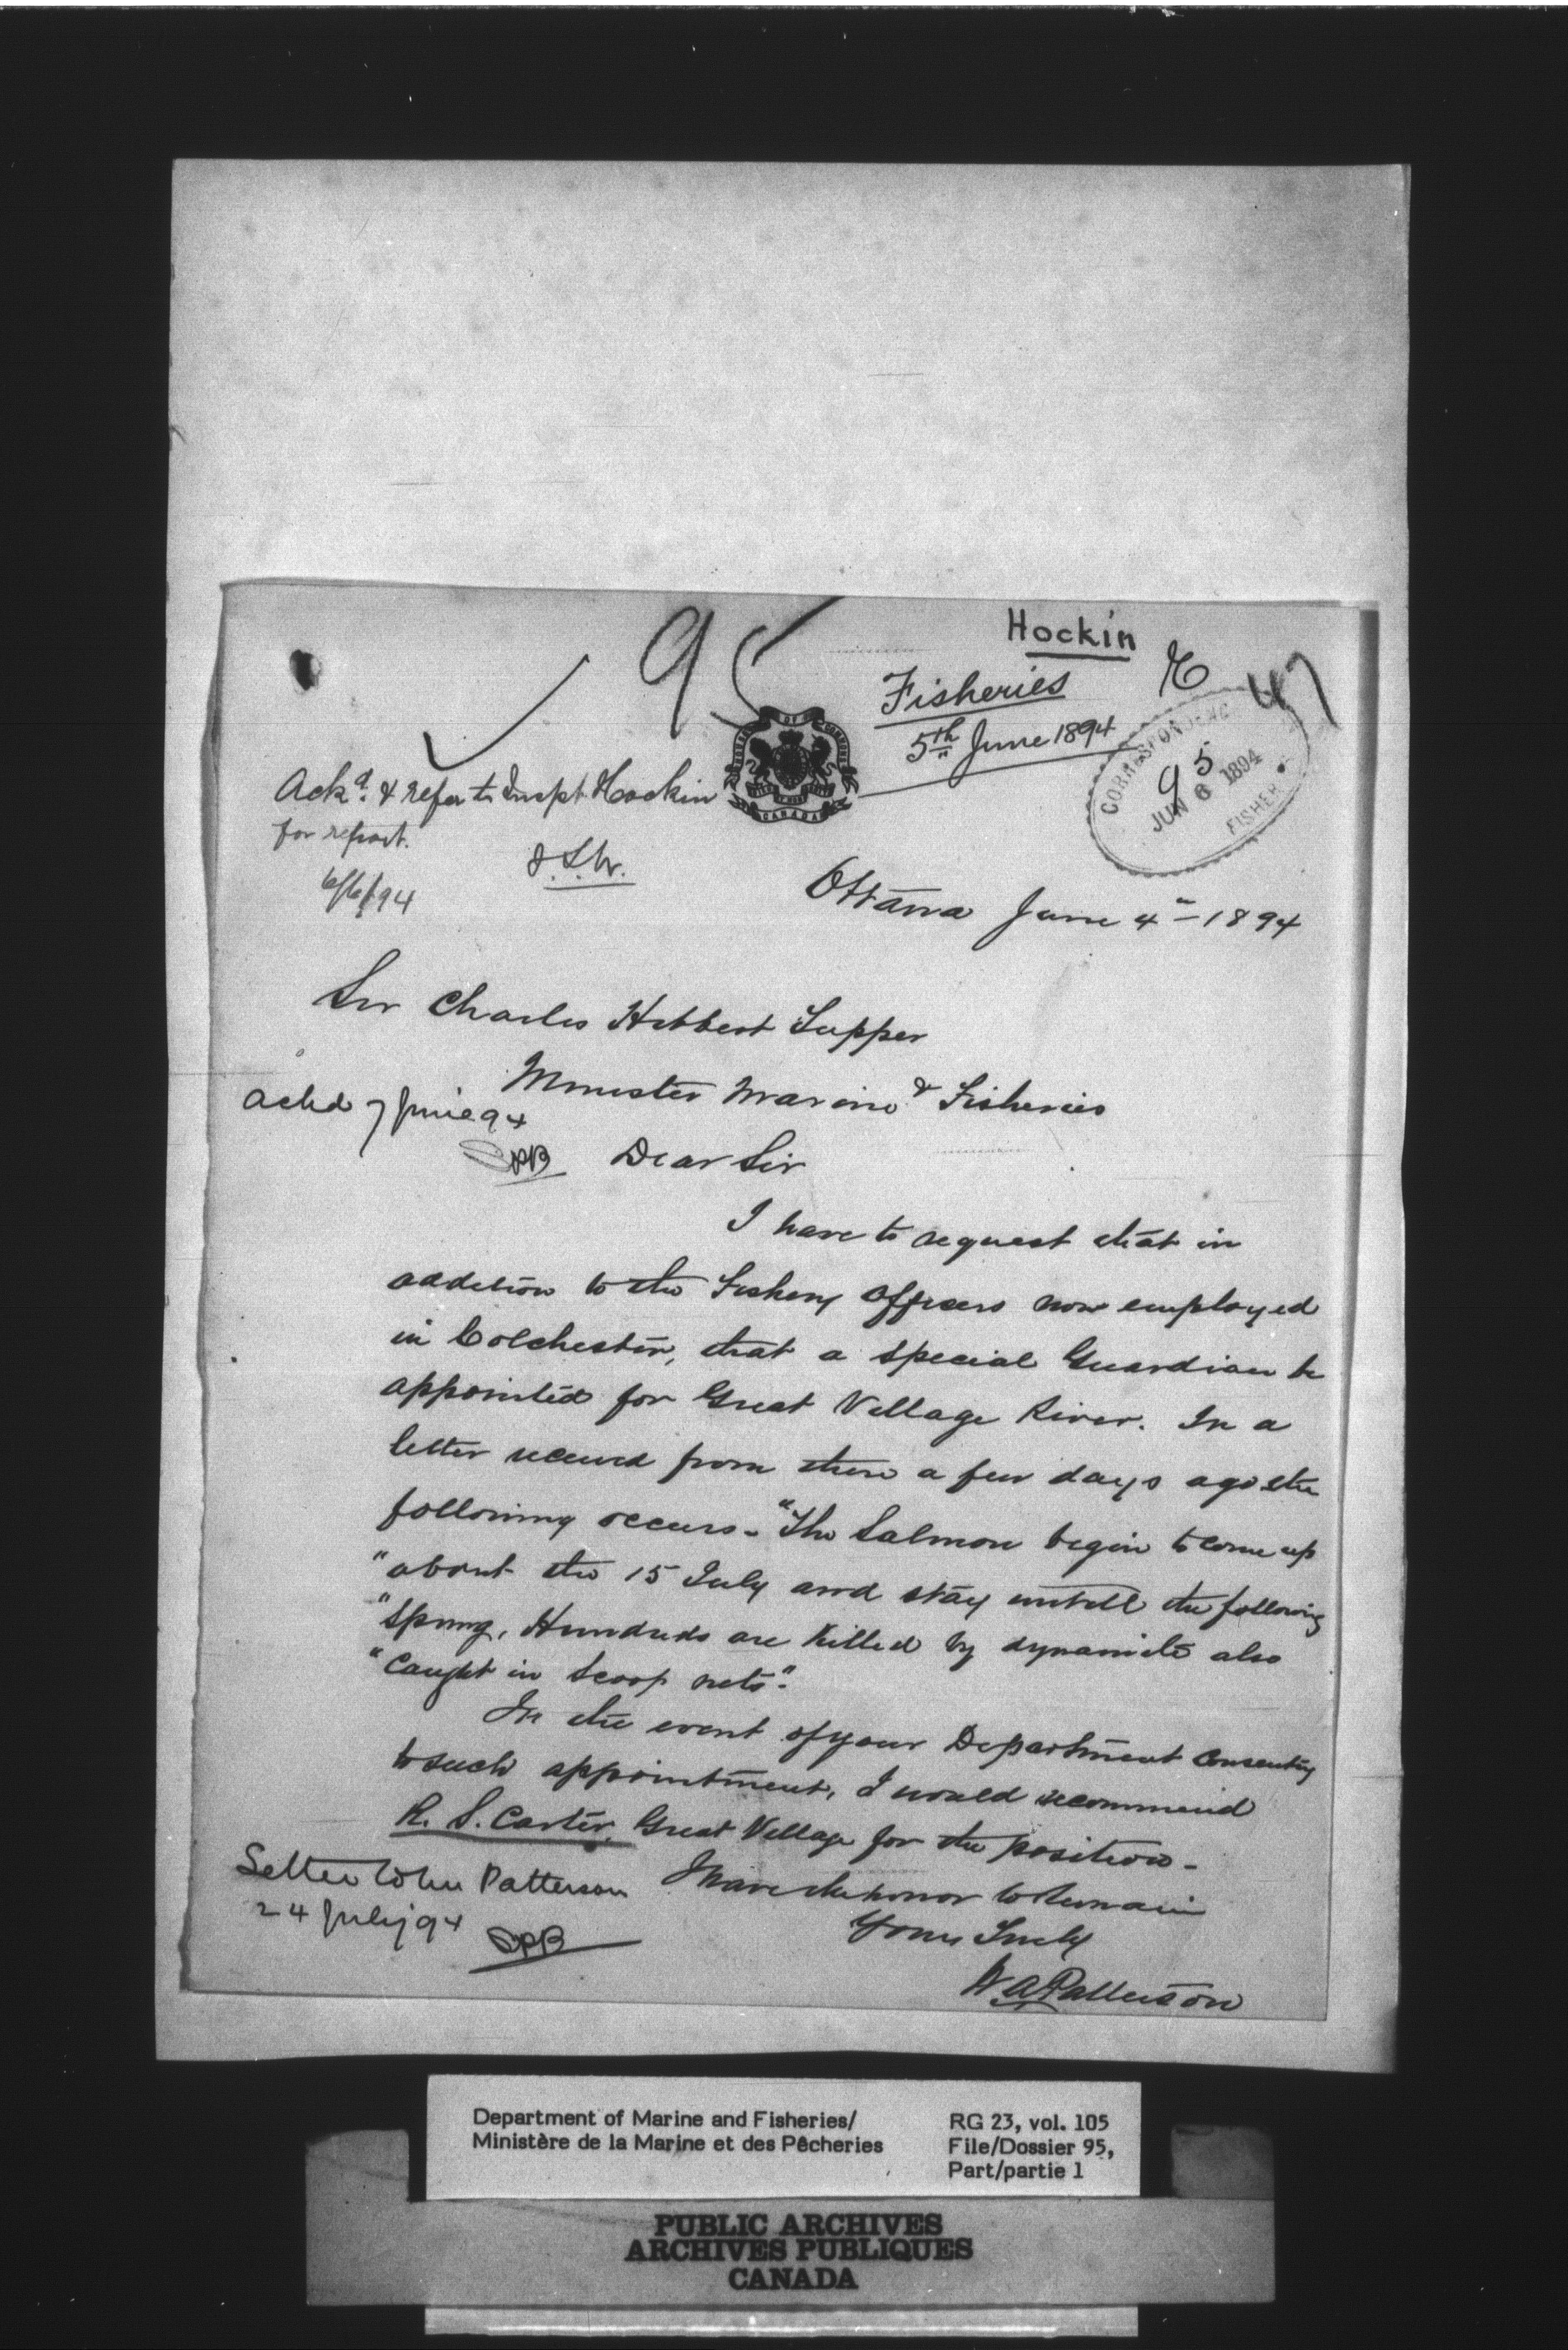 Hockin
95
Fisheries
5th June 1894
47
CORRESPONDENC
95
JUN 6 1894
FISHER
HOUSE OF COMMONS
CANADA
Ackd. & refer to Inspt. Hockin
for report.
6/6/94
Ottawa June 4" - 1894
Sir Charles Hibbert Tupper
Minister Marine & Fisheries
Ackd 7 June 94
Dear Sir
I have to request that in
addition to the Fishery Officers now employed
in Colchester, that a special Guardian be
appointed for Great Village River. In a
letter received from there a few days ago the
following occurs - "The Salmon begin to come up
"about the 15 July and stay untill the following
"Spring, Hundreds are killed by dynamite also
"Caught in Scoop nets".
In the event of your Department consenting
to such appointment, I would recommend
R. S. Carter, Great Village for the position -
I have the honor to Remain
Yours Truly
W A Patterson
Letter to Wm Patterson
24 July 94
Department of Marine and Fisheries/
Ministère de la Marine et des Pêcheries
RG 23, vol. 105
File/Dossier 95,
Part/partie 1
PUBLIC ARCHIVES
ARCHIVES PUBLIQUES
CANADA